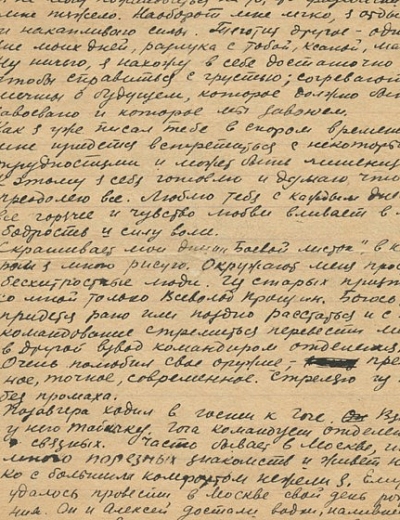 мне тяжело. Наоборот мне легко, я отды
и накапливаю силы. Тяготит другое - одно
ие моих дней, разлука с тобой, Ксаной, ма
Ну ничего, я нахожу в себе достаточно
чтобы справиться с грустью; согревают
мечты о будущем, которое должно быт
завоевано и которое мы завоюем.
Как я уже писал тебе в скором времени
мне придется встретиться с некоторы
трудностями и может быть лишения
К этому я себя готовлю и думаю, что
преодолею все. Люблю тебя с каждым дне
все горячее и чувство любви вливает в м
бодрость и силу воли.
Скрашивает мои дни „Боевой листок", в к
ром я много рисую. Окружают меня прос
бесхитростные люди. Из старых прият
со мной только Всеволод
придется рано или поздно расстаться и с
командование стремиться перевести ме
в другой взвод командиром отделения.
Очень полюбил свое оружие, - пре
ное, точное, современное. Стреляю из
без промаха.
Позавчера ходил в гости к Гоге. Вз
у него Гога командует отделен
связных. Часто бывает в Москве, и
много полезных знакомств и живет н
ко с большим комфортом нежели я. Ему
удалось провести в Москве свой день рож
ния. Он и Алексей достали водки,